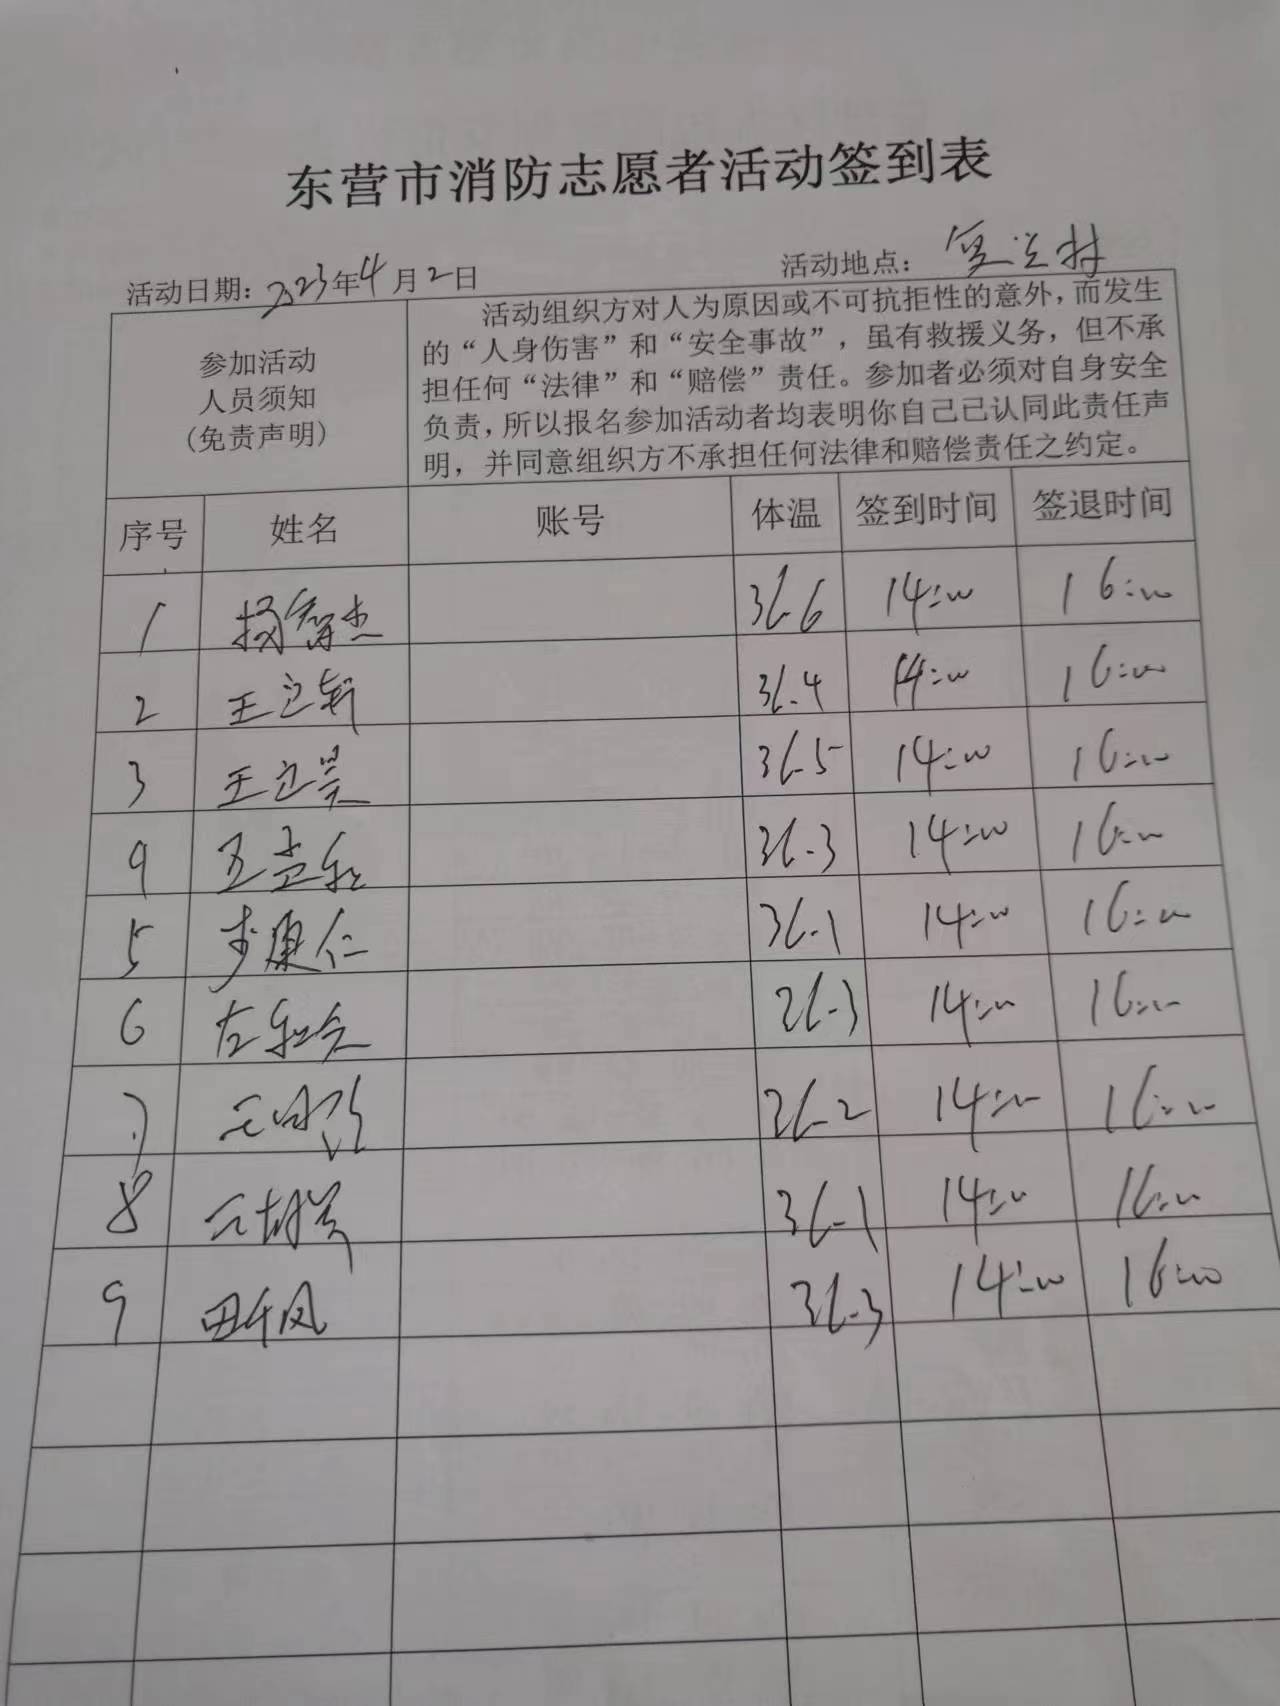 东营市消防志愿者活动签到表
活动日期：2023年4月2日 活动地点：
参加活动
人员须知
(免责声明)
活动组织方对人为原因或不可抗拒性的意外，而发生
的“人身伤害”和“安全事故”，虽有救援义务，但不承
担任何“法律”和“赔偿”责任。参加者必须对自身安全
负责，所以报名参加活动者均表明你自己已认同此责任声
明，并同意组织方不承担任何法律和赔偿责任之约定。
序号 姓名 账号 体温 签到时间 签退时间
1 杨智杰 36.6 14:00 16:00
2 王立新 36.4 14:00 16:00
3 王立昊 36.5 14:00 16:00
4 36.3 14:00 16:00
5 步康仁 36.1 14:00 16:00
6 36.3 14:00 16:00
7 36.2 14:00 16:00
8 36.1 14:00 16:00
9 田千风 36.3 14:00 16:00